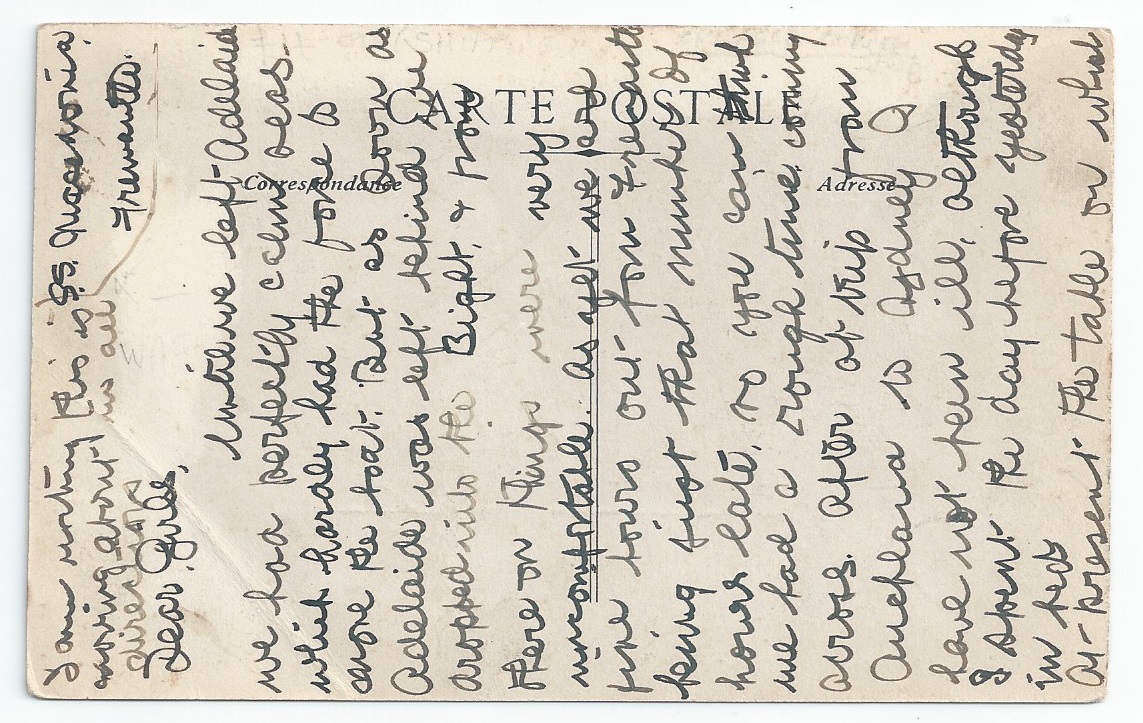 I am writing this is SS. Macedonia
moving about in all Fremantle.
directions
Dear Girls,
Until we left Adelaide
we had perfectly calm seas -
which hardly had the force to
move the boat. But as soon as
Adelaide was left behind we
dropped into the Bight, & from
there on things were very
uncomfortable. As yet we are
five hours out from Fremantle
being just that number of
hours late, so you can think
we had a rough time coming
across. After at trip from
Auckland to Sydney I
have not been ill, although
I spent the day before yesterday
in bed
At present the table on which
CARTE POSTALE
Correspondance
Adresse